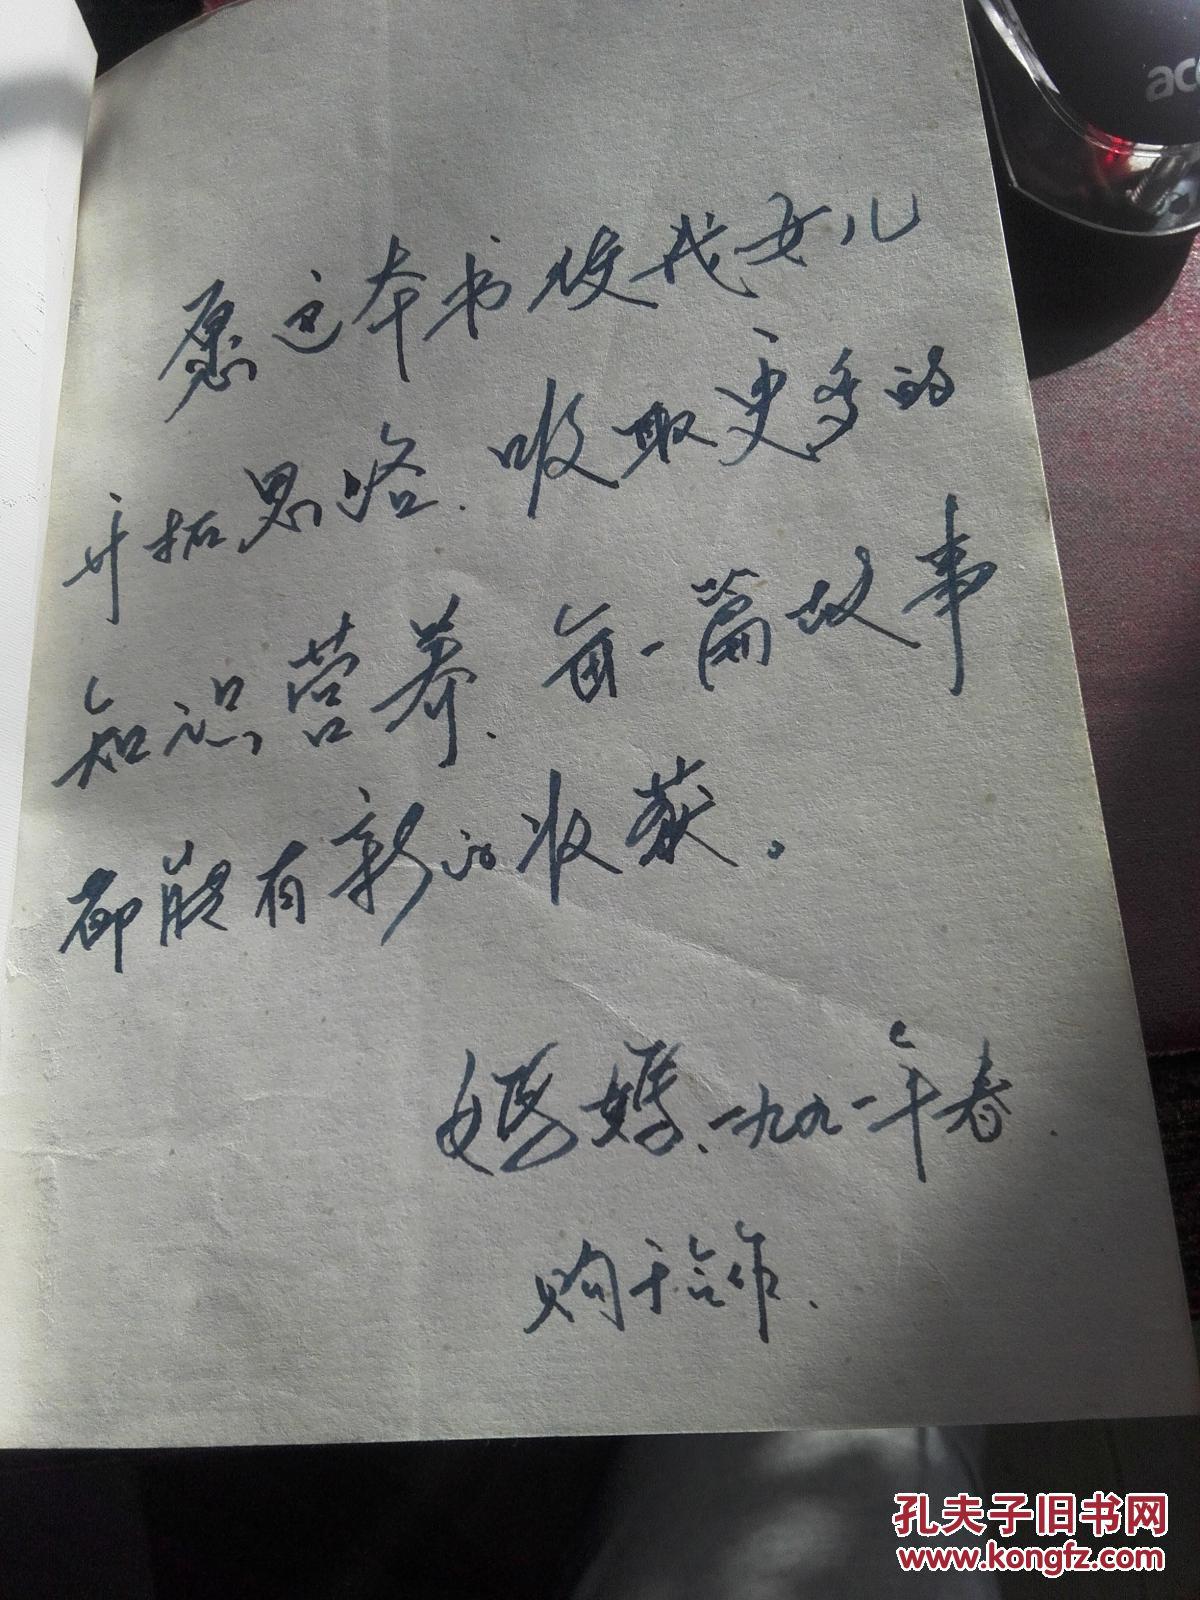 愿这本书使我女儿
开拓思路、吸取更多的
知识营养、每一篇故事
都能有新的收获。
妈妈、一九九一年春.
购于合作.
孔夫子旧书网
www.kongfz.com